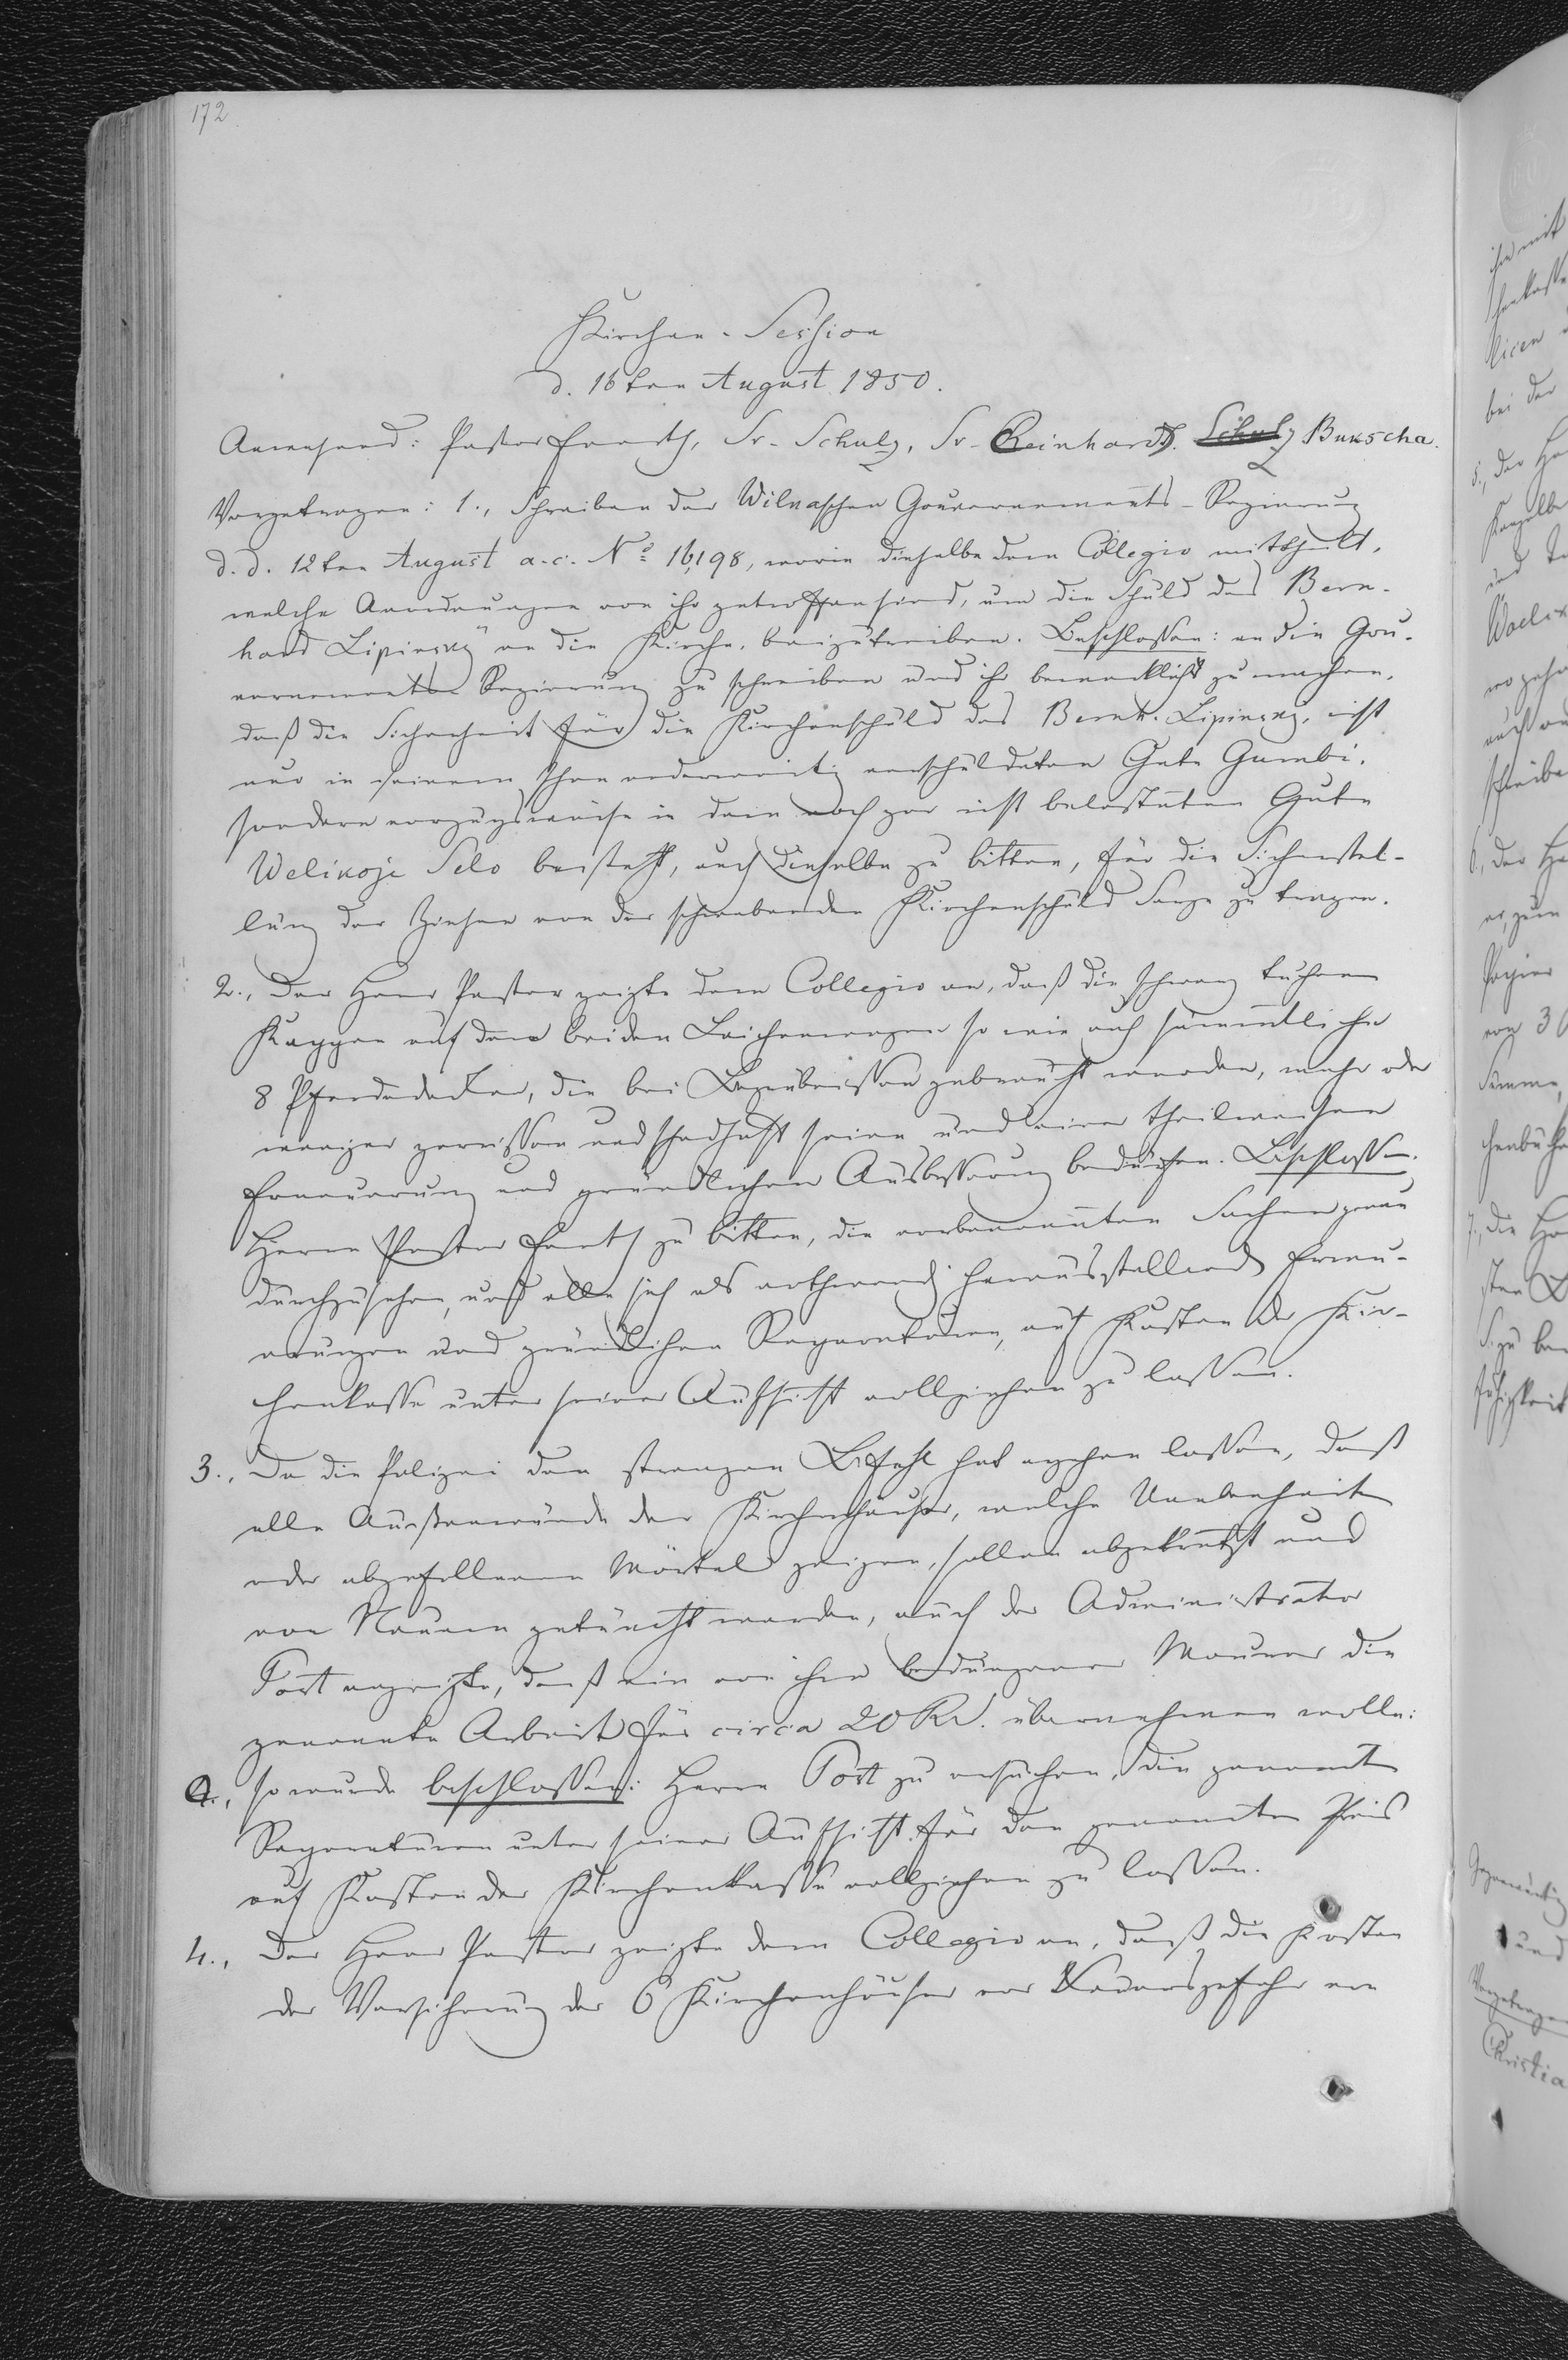 172
Kirchen-Session
d. 16ten August 1850.
Anwesend: Pastor Fausth, Dr. Schulz, Dr. Reinhardt. Schulz Bukscha.
Vorgetragen: 1., Schreiben der Wilnaschen Gouvernements-Regierung
d. d. 12ten August a. c. No 16,198, worin dieselbe dem Collegio mittheilt,
welche Anordnungen von ihr getroffen sind, um die Schuld des Bern-
hard Lipinsky an die Kirche, beizutreiben. Beschlossen: an die Gou-
vernements Regierung zu schreiben und ihr bemerklich zu machen,
daß die Sicherheit für die Kirchenschuld des Bernh. Lipinsky, nicht
nur in seinem schon anderweitig verschuldeten Gute Gumbi,
sondern vorzugsweise in dem noch gar nicht belasteten Gute
Welikoje Selo besteht, auch dieselbe zu bitten, für die Sicherstel-
lung der Zinsen von der schwebenden Kirchenschuld Sorge zu tragen.
2., Der Herr Pastor zeigte dem Collegio an, daß die schwarz tuchnen
Kappen auf den beiden Leichenwagen so wie auch sämmtliche
8 Pferdedecken, die bei Begräbnissen gebraucht werden, mehr oder
weniger zerrissen und schadhaft seien und einer theilweisen
Erneuerung und gründlichen Ausbesserung bedürfen. Beschlossen.
Herrn Pastor zu bitten, die vorbenannten Sachen genau
durchzusehen, und alle sich als nothwendig herausstellenden Erneu-
erungen und gründlichen Reparaturen, auf Kosten der Kir-
chenkasse unter seiner Aufsicht vollziehen zu lassen.
3., Da die Polizei den strengen Befehl hat ergehen lassen, daß
alle Außenwände der Kirchenhäuser, welche Unebenheiten
oder abgefallenen Mörtel zeigen, sollen abgekratzt und
von Neuem getüncht werden, auch der Administrator
Post anzeigte, daß ein von ihm bedungener Maurer die
genannte Arbeit für circa 20 Rbl. übernehmen wolle:
so wurde beschlossen: Herrn Post zu ersuchen, die genannten
Reparaturen unter seiner Aufsicht für den genannten Preis
auf Kosten der Kirchenkasse vollziehen zu lassen.
4., Der Herr Pastor zeigte dem Collegio an, daß die Kosten
der Versicherung der 6 Kirchenhäuser vor Feuersgefahr von